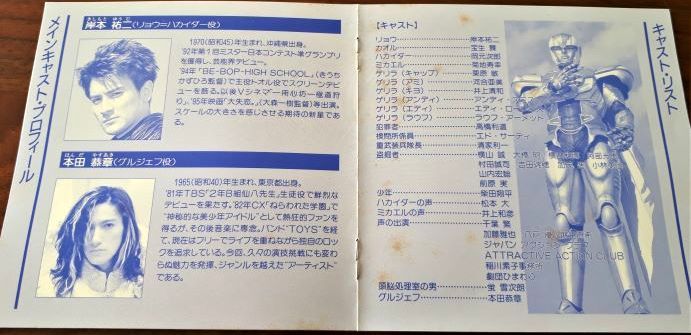 メインキャスト・プロフィール
きしもと ゆうじ
岸本 祐二(リョウ=ハカイダー役)
1970(昭和45)年生まれ、沖縄県出身。
'92年第1回ミスター日本コンテスト準グランプリ
を獲得し、芸能界デビュー。
'94年「BE-BOP-HIGH SCHOOL」(きうち
かずひろ監督)で主役・トオル役でスクリーンデビュ
ーを飾る。以後Vシネマ「一用心坊一極道狩
り」、'95年映画「大失恋。」(大森一樹監督)等出演。
スケールの大きさを感じさせる期待の新星であ
る。
ほんだ やすあき
本田 恭章(グルジェフ役)
1965(昭和40)年生まれ、東京都出身。
'81年TBS「2年B組仙八先生」生徒役で鮮烈な
デビューを果たす。'82年CX「ねらわれた学園」で
"神秘的な美少年アイドル"として熱狂的ファンを
得るが、その後音楽に専念。バンド"TOYS"を経
て、現在はフリーでライブを重ねながら独自のロッ
クを追求している。今回、久々の演技挑戦にも変わ
らぬ魅力を発揮、ジャンルを越えた"アーティスト"
である。
キャスト・リスト
【キャスト】
リョウ 岸本祐二
カオル 宝生 舞
ハカイダー 岡元次郎
ミカエル 菊地寿幸
ゲリラ(キャップ) 栗原 敏
ゲリラ(アミ) 河合亜美
ゲリラ(キヨ) 井上清和
ゲリラ(アンディ) アンディ・
ゲリラ(エディ) エディ・ロー
ゲリラ(ラウフ) ラウフ・アーメット
犯罪者 高橋利道
検問所係員 エド・サーディ
重武装兵隊長 清家利一
盗掘者 横山 誠 大橋 明
村田誠司
山内宏始
前原 実
少年 柴田翔平
ハカイダーの声 松本 大
ミカエルの声 井上和彦
声の出演 千葉 繁
加藤雅也
ジャパンアクション
ATTRACTIVE ACTION CLUB
稲川素子事務所
劇団ひまわり
頭脳処理室の男 蛍 雪次朗
グルジェフ 本田恭章